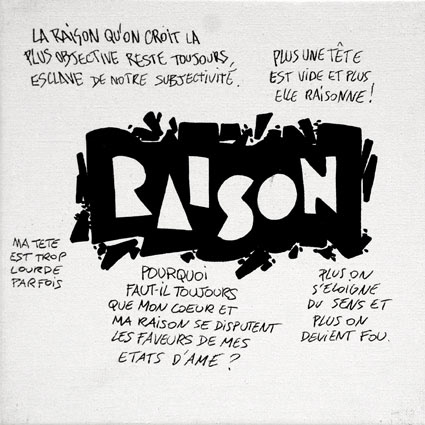 LA RAISON QU'ON CROIT LA
PLUS OBJECTIVE RESTE TOUJOURS,
ESCLAVE DE NOTRE SUBJECTIVITÉ.
PLUS UNE TÊTE
EST VIDE ET PLUS
ELLE RAISONNE!
RAISON
MA TETE
EST TROP
LOURDE
PARFOIS
POURQUOI
FAUT-IL TOUJOURS
QUE MON COEUR ET
MA RAISON SE DISPUTENT
LES FAVEURS DE MES
ETATS D'AME ?
PLUS ON
S'ELOIGNE
DU SENS ET
PLUS ON
DEVIENT FOU.